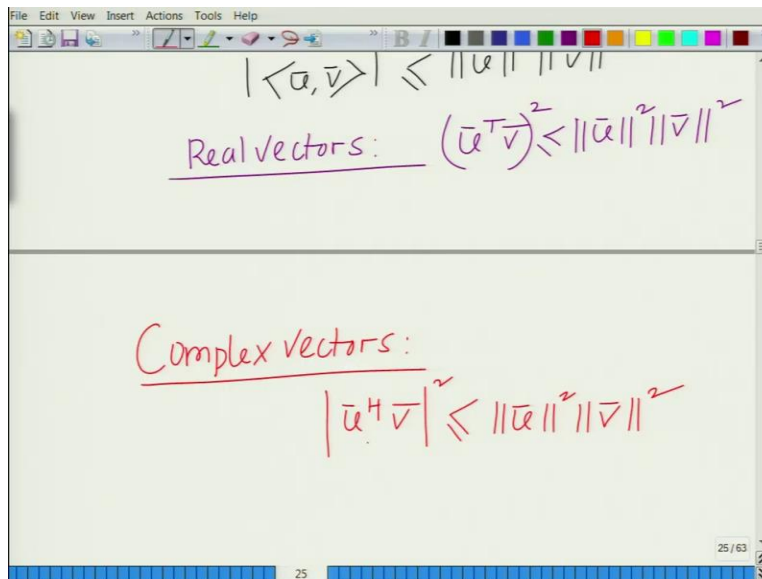 File Edit View Insert Actions Tools Help
|<ū, v̄>| ≤ ||ū|| ||v̄||
Real vectors: (ū^T v̄)^2 ≤ ||ū||^2 ||v̄||^2
Complex vectors:
|ū^H v̄|^2 ≤ ||ū||^2 ||v̄||^2
25/63
25